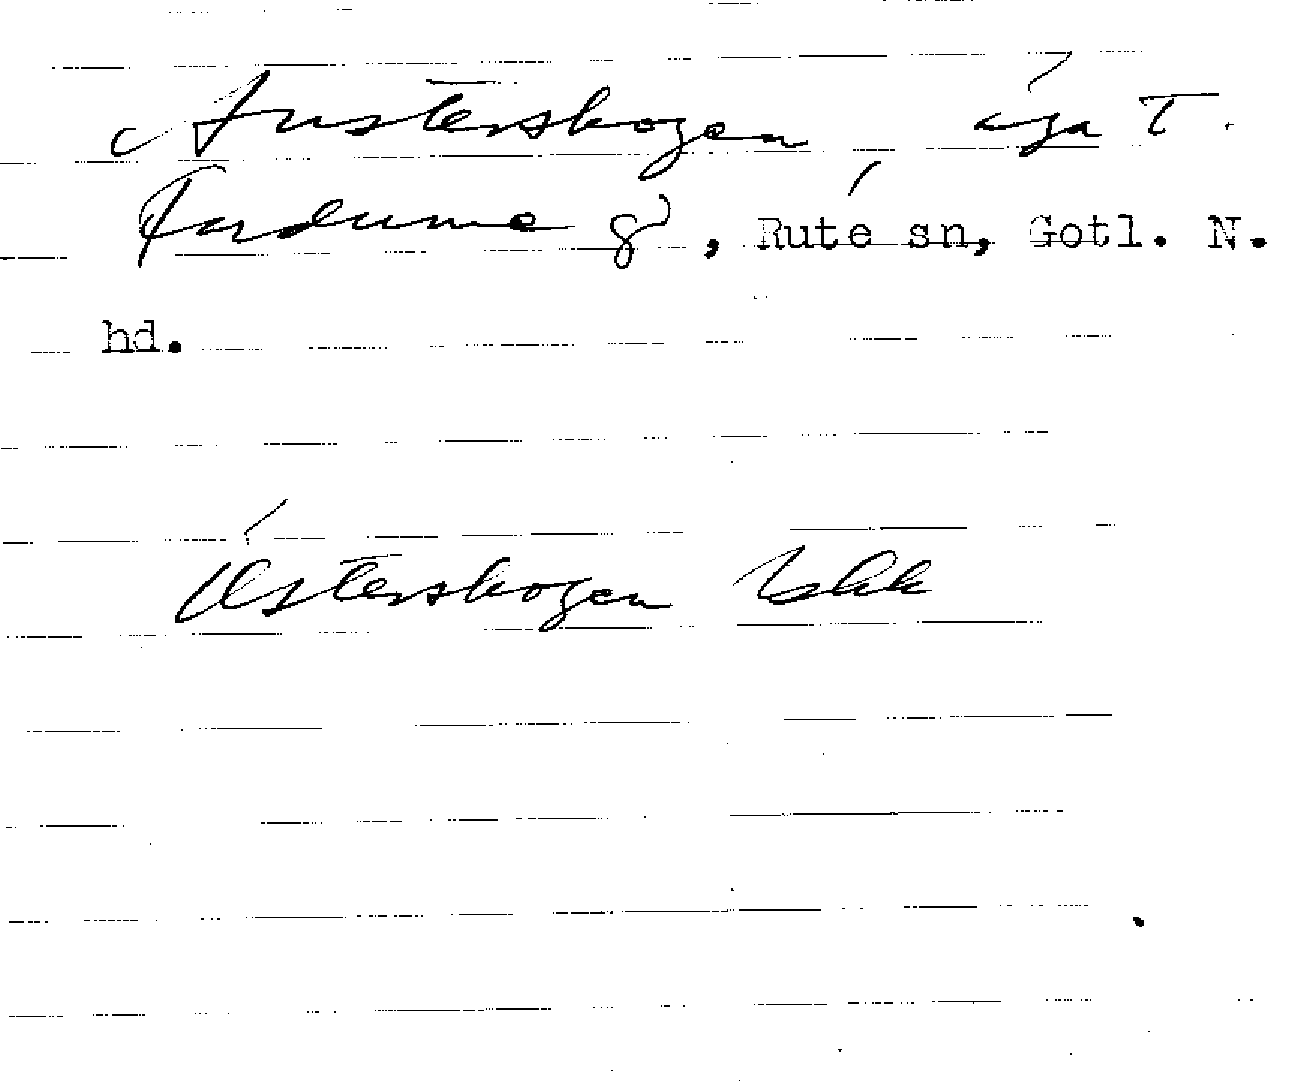 Austerskogen, äga T.
Fardume g, Rute sn, Gotl. N.
hd.
Österskogen